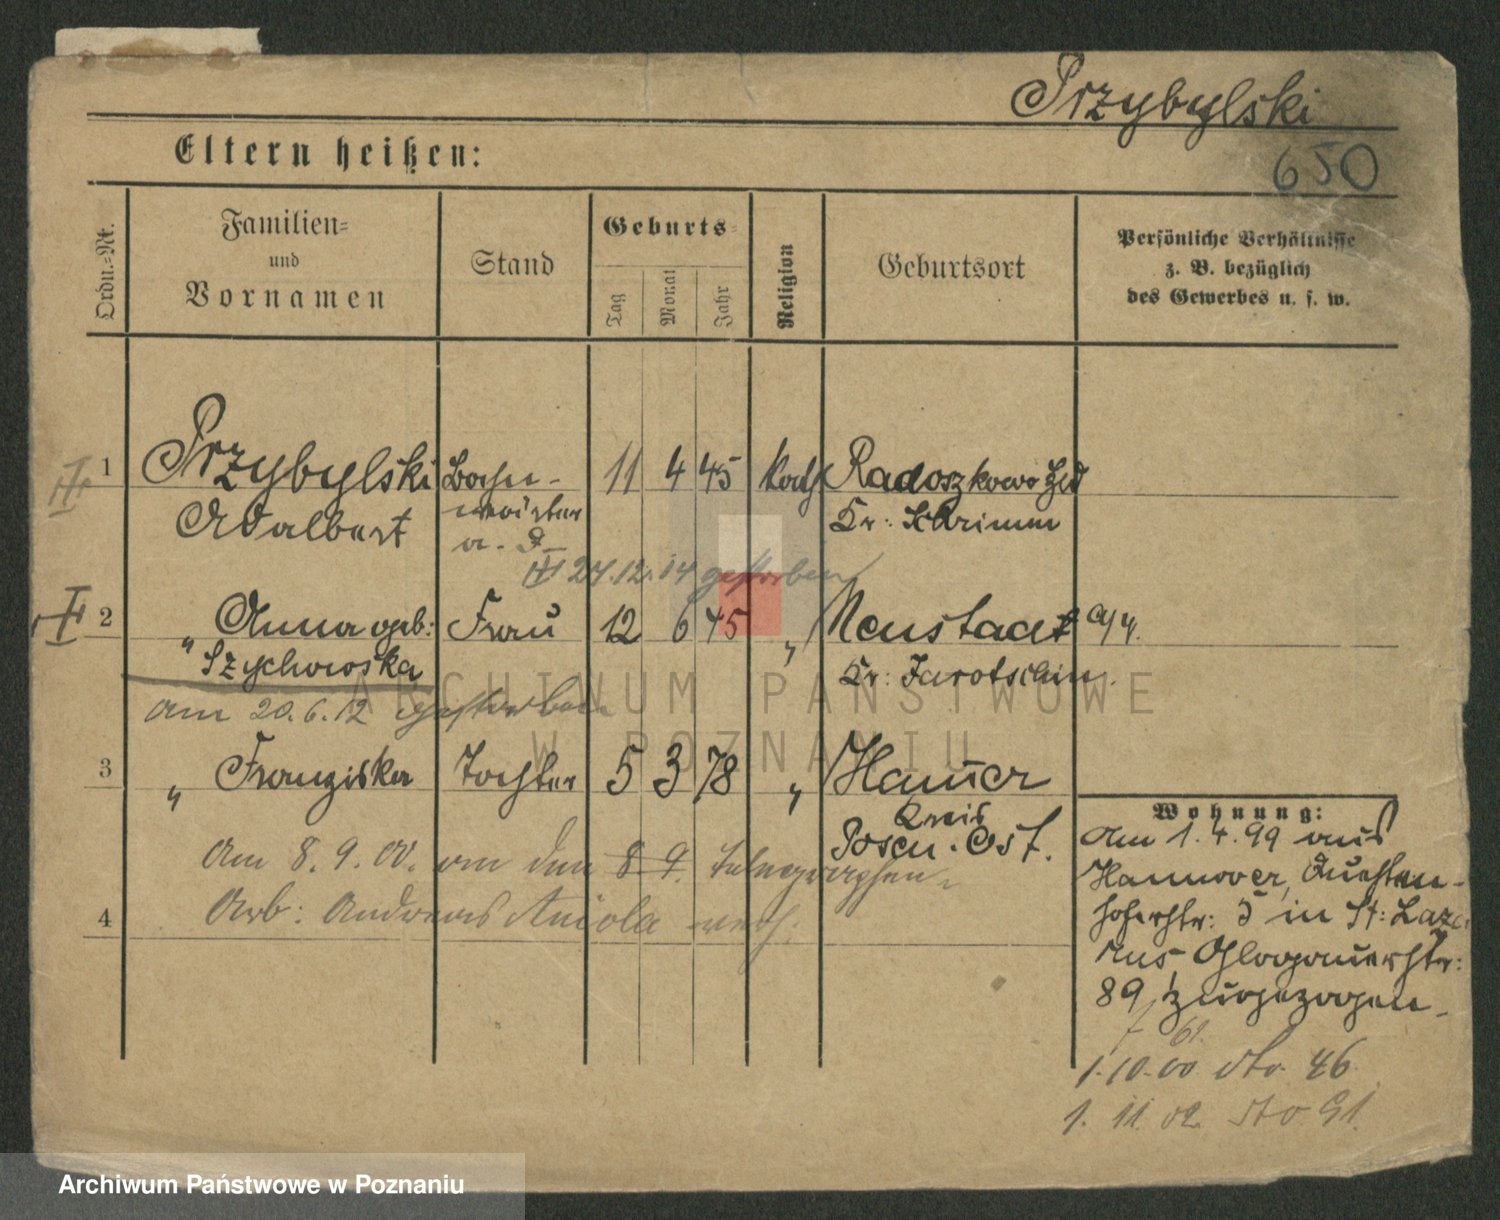 Przybylski
650
Eltern heißen:
Ordn.-Nr.
Familien-
und
Vornamen
Stand
Geburts-
Tag
Monat
Jahr
Religion
Geburtsort
Persönliche Verhältnisse
z. B. bezüglich
des Gewerbes u. s. w.
1 Przybylski 11 4 45 kath Radoszkowo
Adalbert Kr: Schrimm
a. D.
27.12.14 gestorben
2 " Anna geb: Frau 12 6 45 " Neustadt a/W.
Szychowska Kr: Jarotschin.
am 20.6.12 gestorben
3 " Franziska Tochter 5 3 78 "
Kreis
Posen-Ost.
Am 8. 9. 00. an den 8. 9. Telegraphen-
4 Arb: Andreas verh:
Wohnung:
Am 1. 4. 99 aus
Hannover,
5 in St: Laza-
rus, Glogauerstr:
89, zugezogen.
1.10.00 dto. 46
1. 11. 02. dto 91.
ARCHIWUM PAŃSTWOWE
W POZNANIU
Archiwum Państwowe w Poznaniu